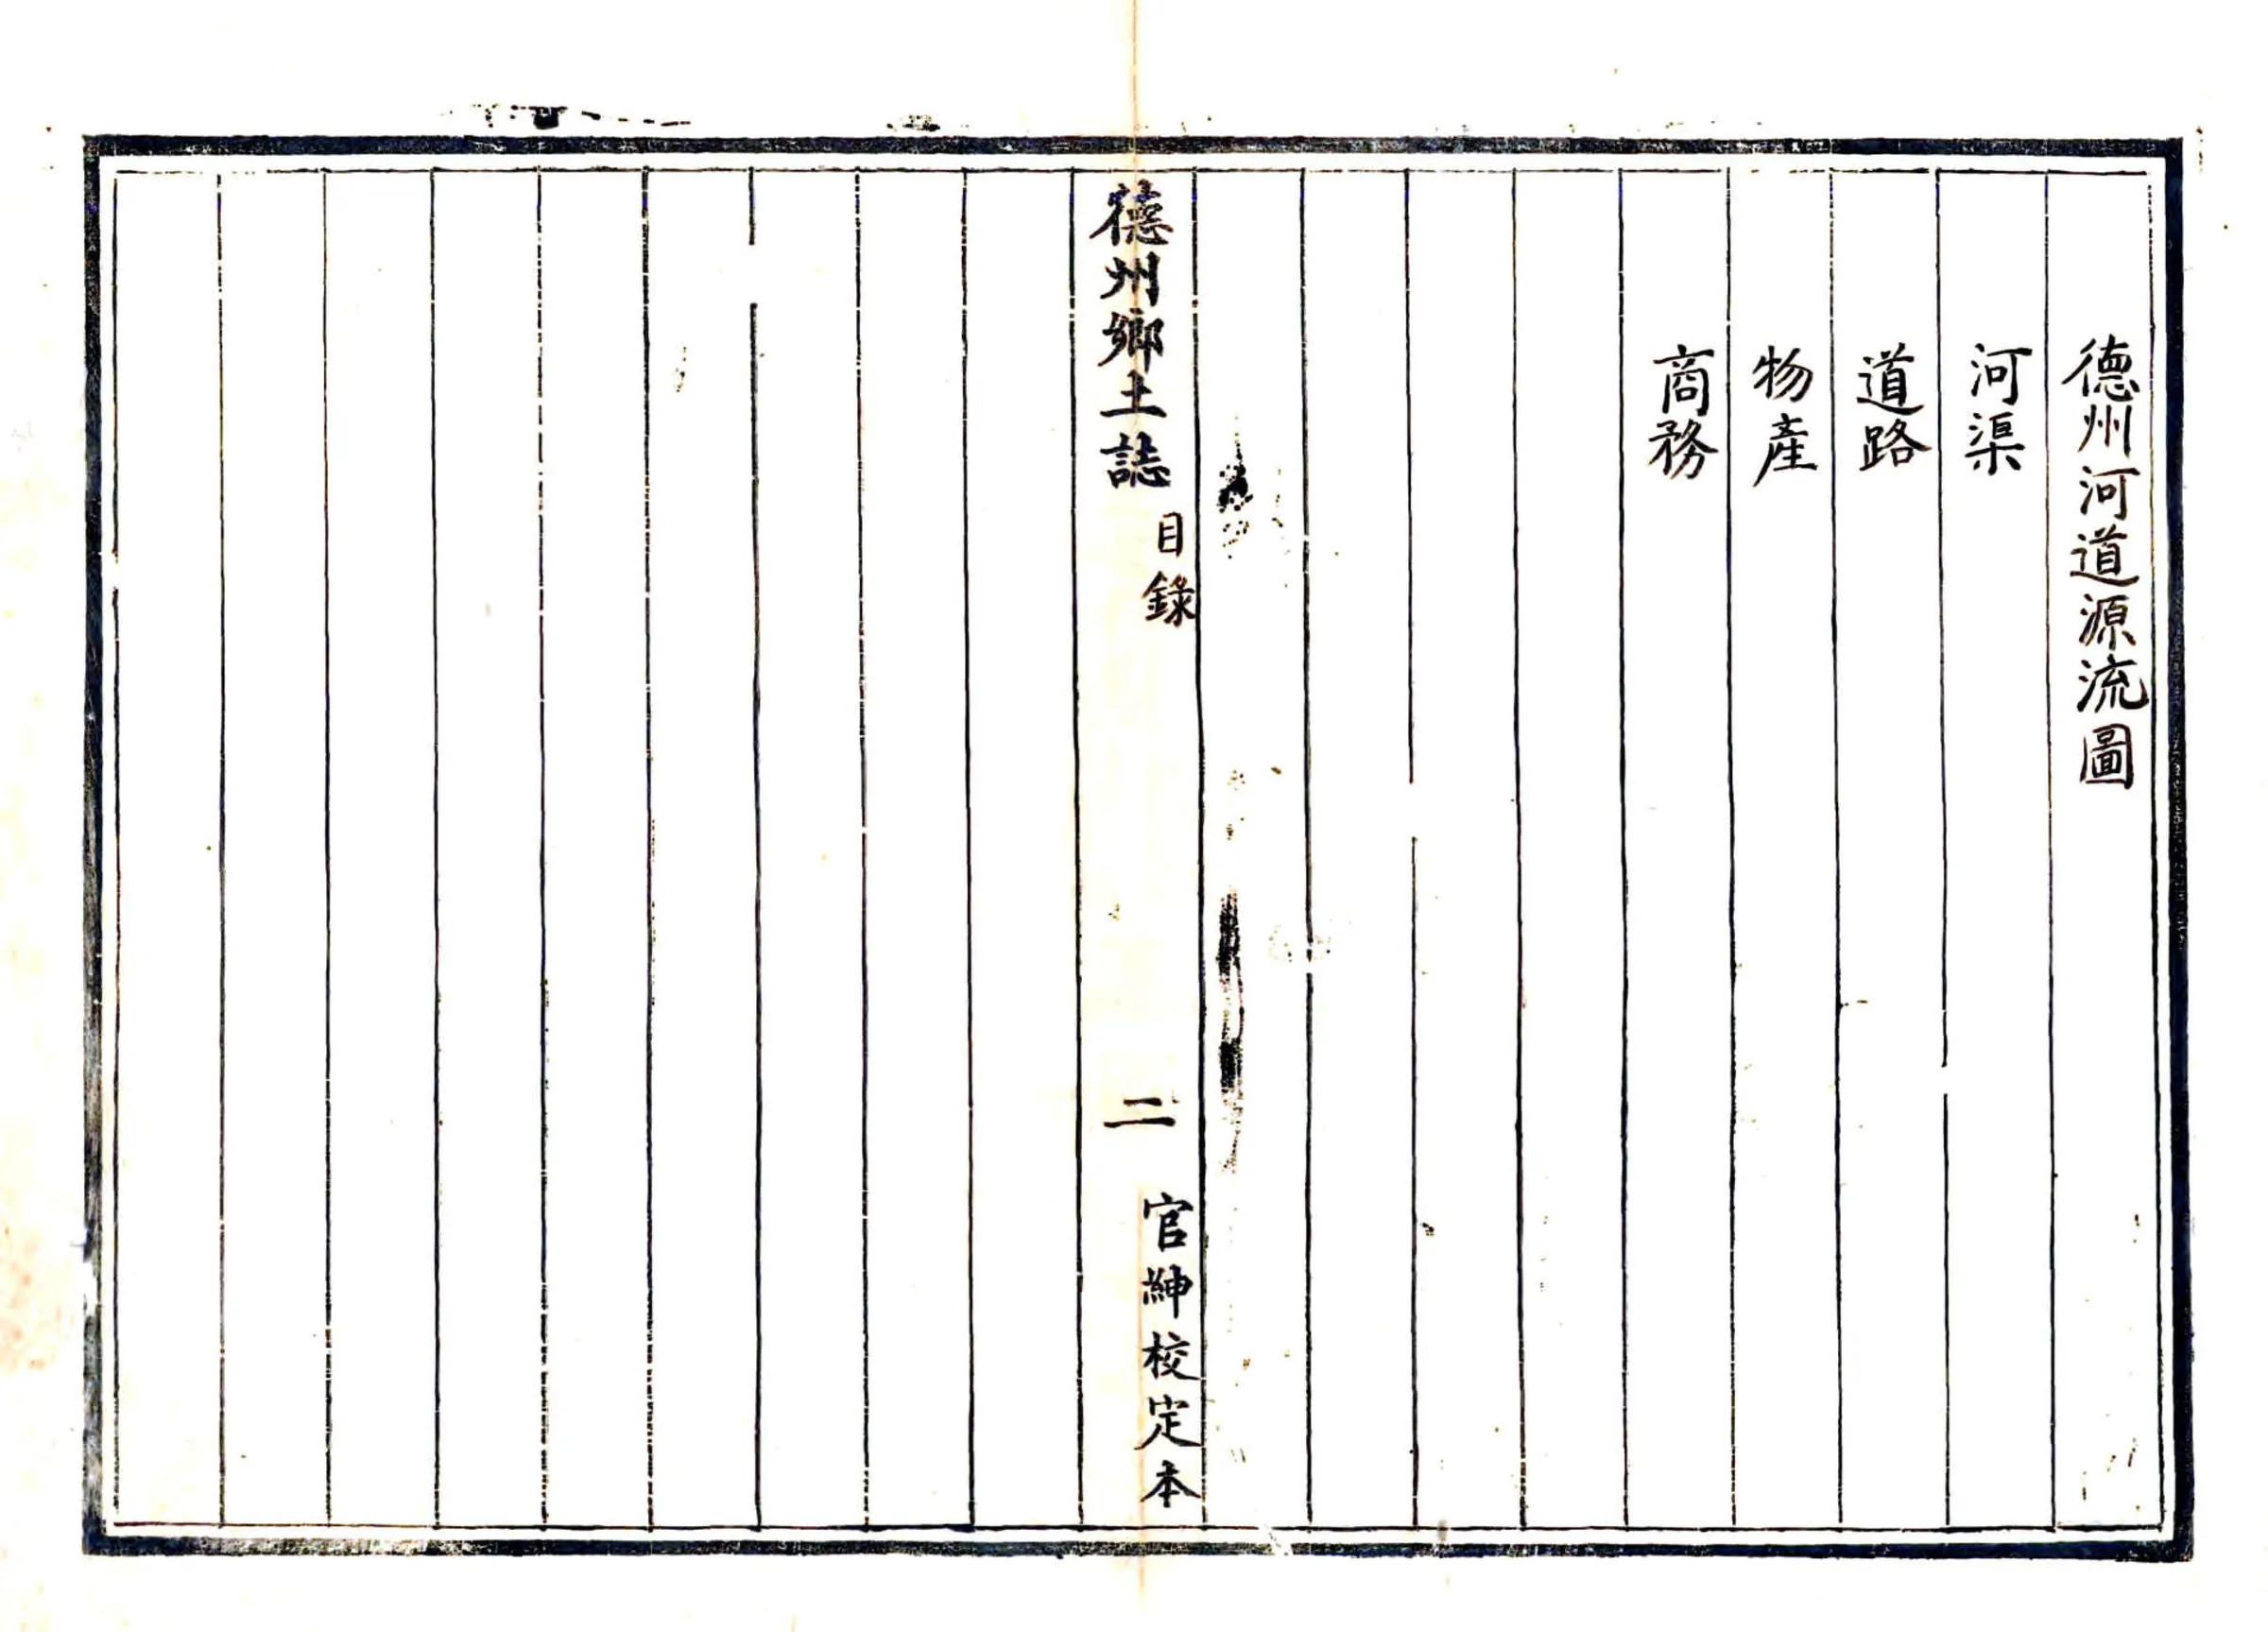 德州河道源流圖
河渠
道路
物產
商務
德州鄉土誌
目錄
二
官紳校定本